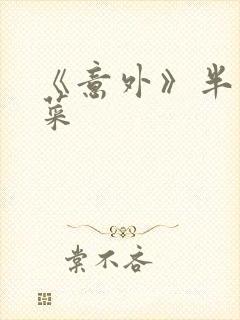 《意外》半
菜
棠不吝